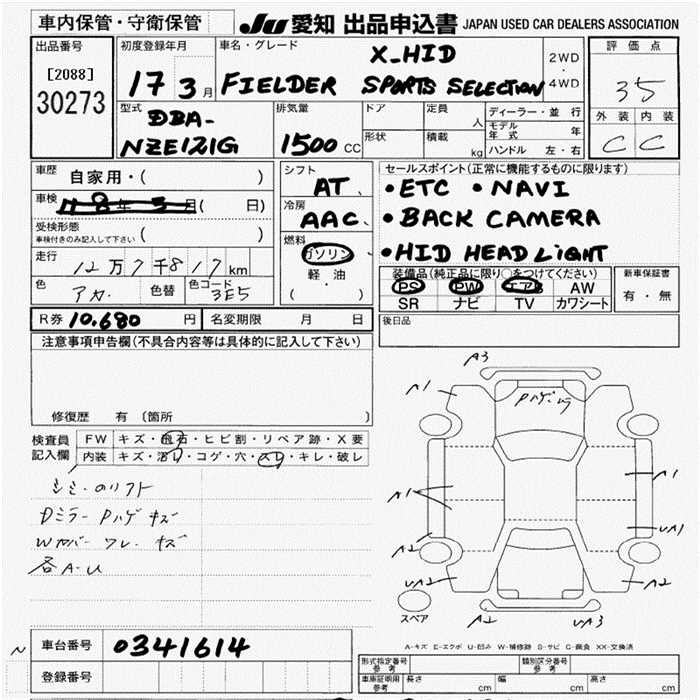 車内保管・守衛保管
JU 愛知 出品申込書 JAPAN USED CAR DEALERS ASSOCIATION
出品番号
[2088]
30273
初度登録年月
17 3月
車名・グレード
X_HID
FIELDER SPORTS SELECTION
2WD
・
4WD
評価点
35
外装 内装
C C
型式
DBA-
NZE121G
排気量
1500 CC
ドア
定員
人
形状
積載
kg
ディーラー・並行
モデル年式 年
ハンドル 左・右
車歴
自家用・( )
車検
18年3月( 日)
受検形態
車検付きのみ記入して下さい ( )
走行
12万7千817km
色
アカ
色替
色コード
3E5
シフト
AT
冷房
AAC
燃料
ガソリン
軽・油
( )
セールスポイント(正常に機能するものに限ります)
・ETC ・NAVI
・BACK CAMERA
・HID HEAD LiGHT
装備品(純正品に限り○をつけてください)
PS PW エアB AW
SR ナビ TV カワシート
新車保証書
有・無
R券 10.680 円
名変期限 月 日
後日品
注意事項申告欄(不具合内容等は具体的に記入して下さい)
修復歴 有 〔箇所 〕
検査員
記入欄
FW キズ・飛石・ヒビ割・リペア跡・X要
内装 キズ・汚レ・コゲ・穴・スレ・キレ・破レ
Dミラー Pハゲ キズ
Wカバー ワレ キズ
各A-U
A3
A1
Pハゲ
A1
A1
UA1
A2
UA2
A2
A2
UA3
スペア
A-キズ E-エクボ U-凹み W-補修跡 S-サビ C-腐食 XX-交換済
N
車台番号 0341614
登録番号
形式指定番号
参考
類別区分番号
参考
車庫証明用
参考
長さ cm
幅 cm
高さ cm